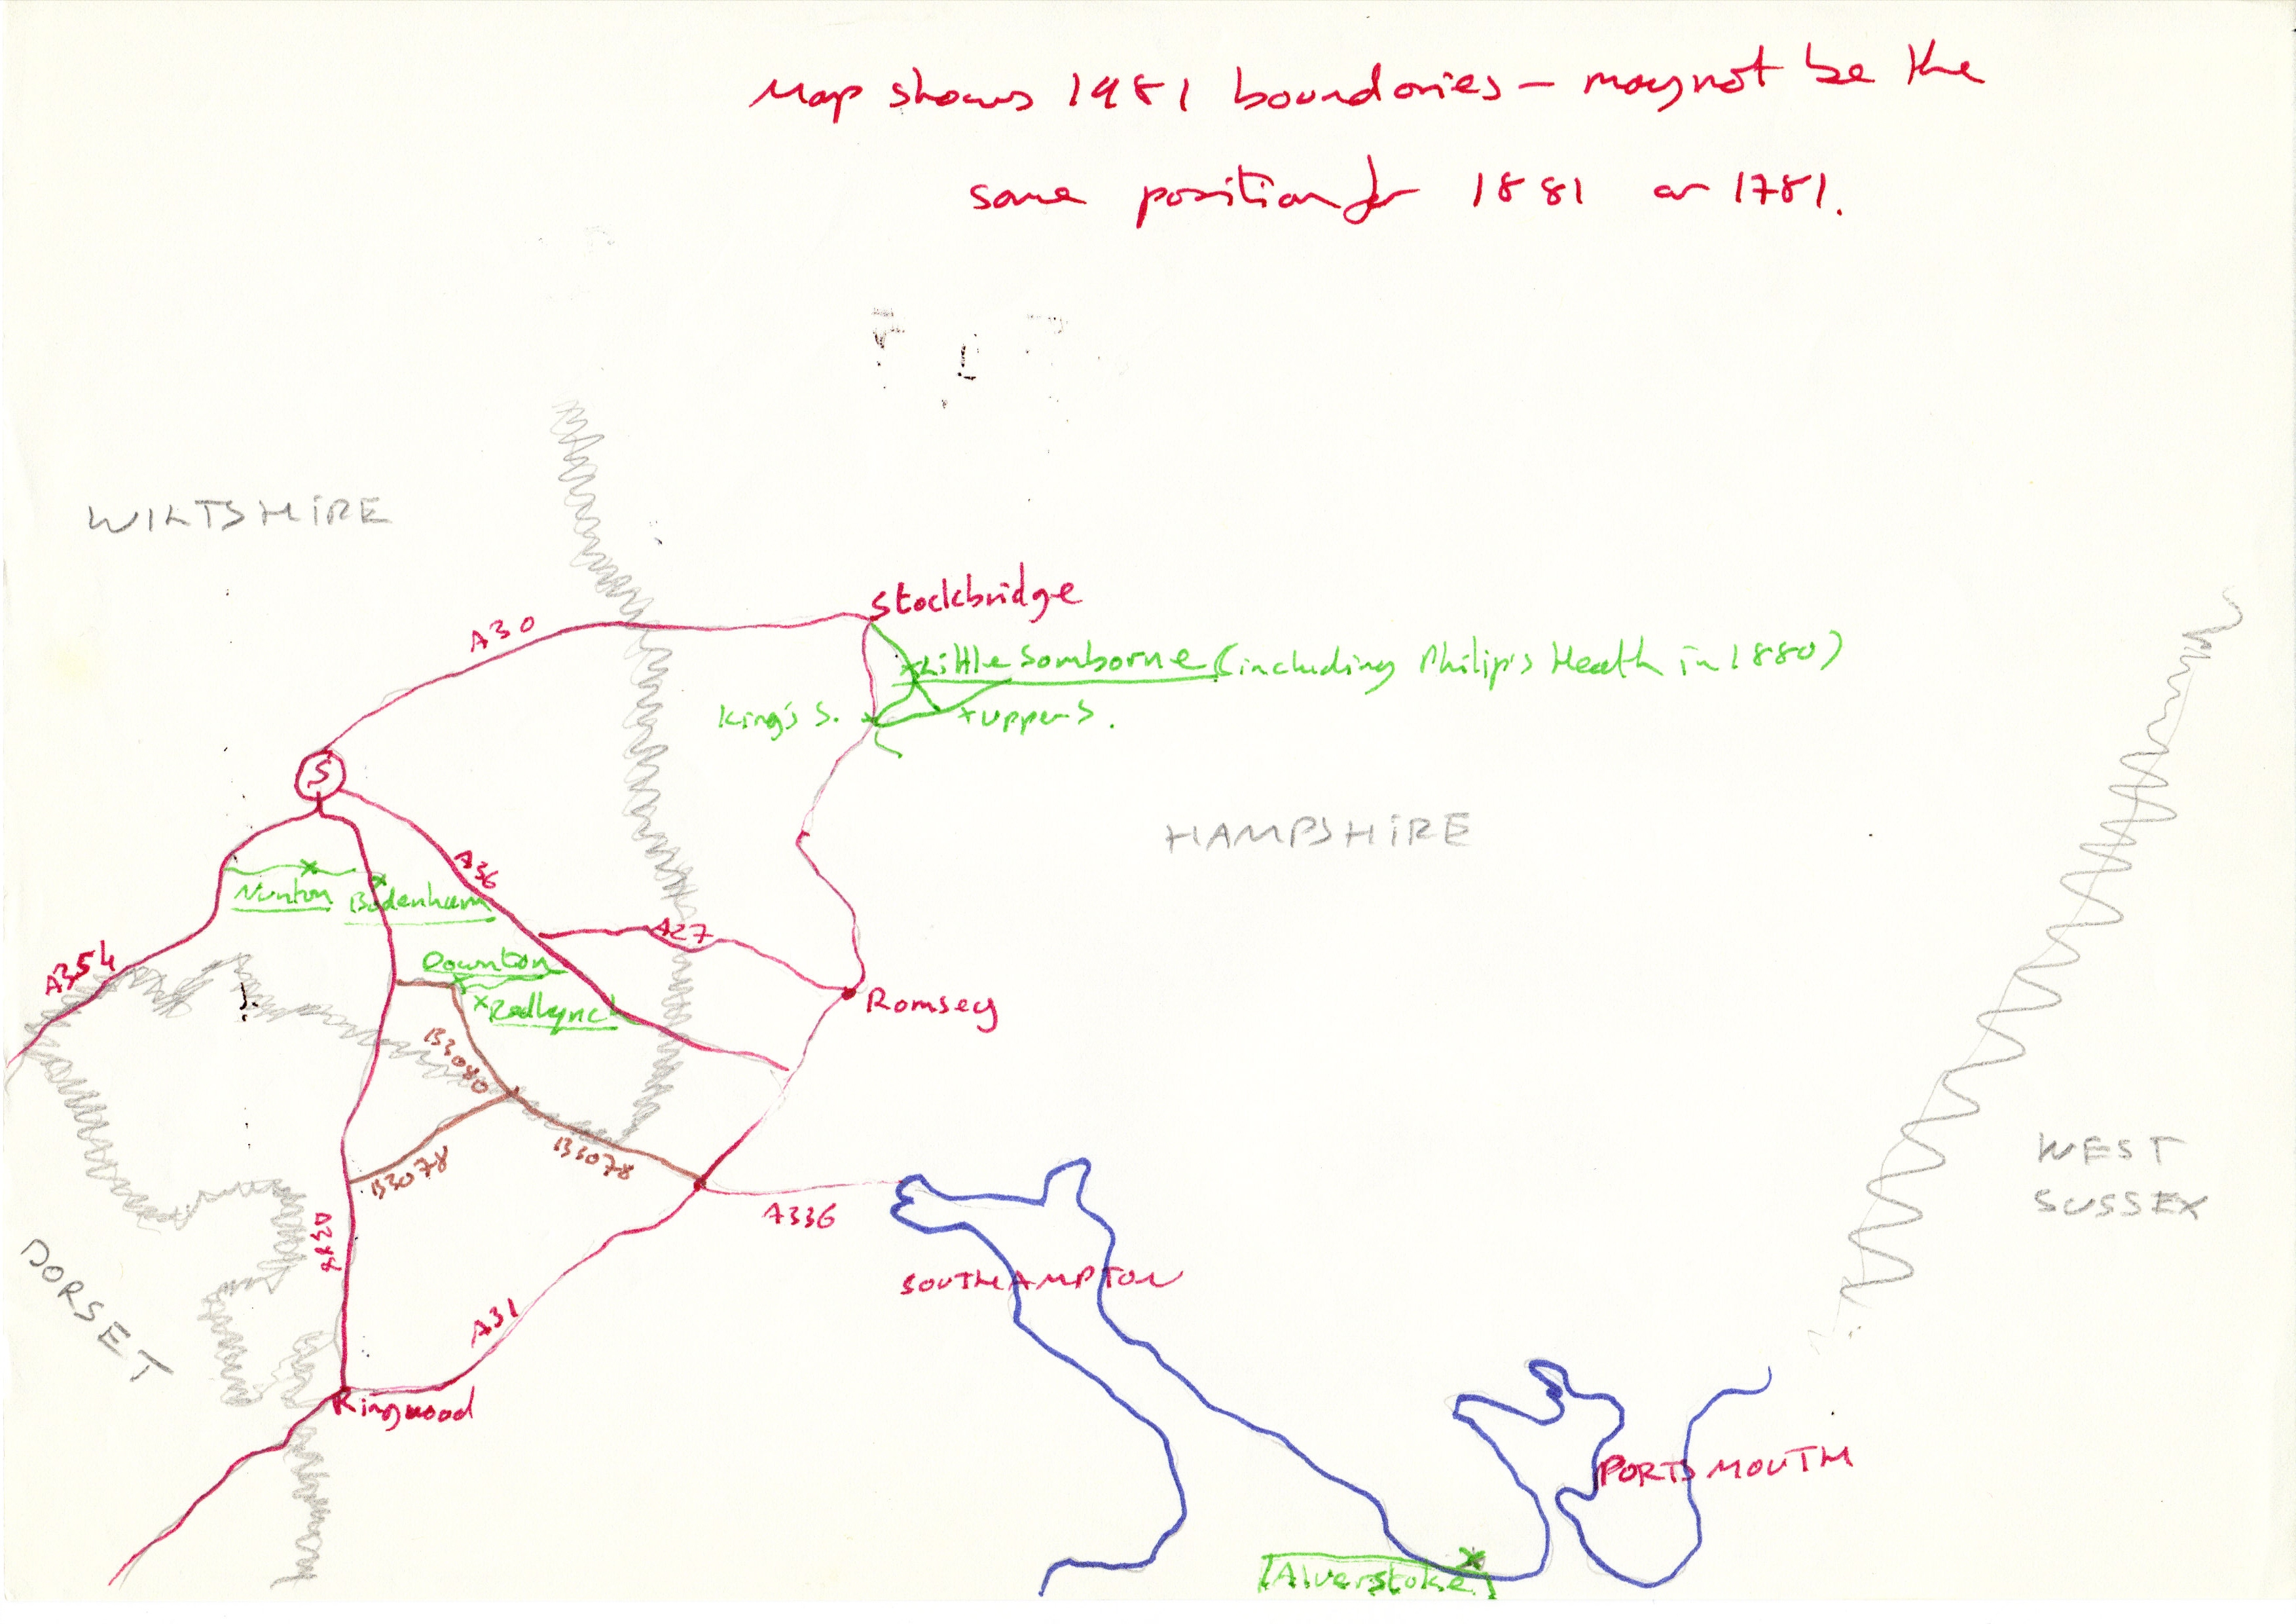 Map shows 1981 boundaries - may not be the
same position for 1881 or 1781.
WILTSHIRE
Stockbridge
A30
Little Somborne (including Philip's Heath in 1880)
King's S.
Upper S.
S
HAMPSHIRE
A36
Nunton
Bodenham
A27
A354
Downton
Redlynch
Romsey
B3080
B3078
B3078
WEST
SUSSEX
A336
DORSET
SOUTHAMPTON
A31
Ringwood
PORTSMOUTH
[Alverstoke]